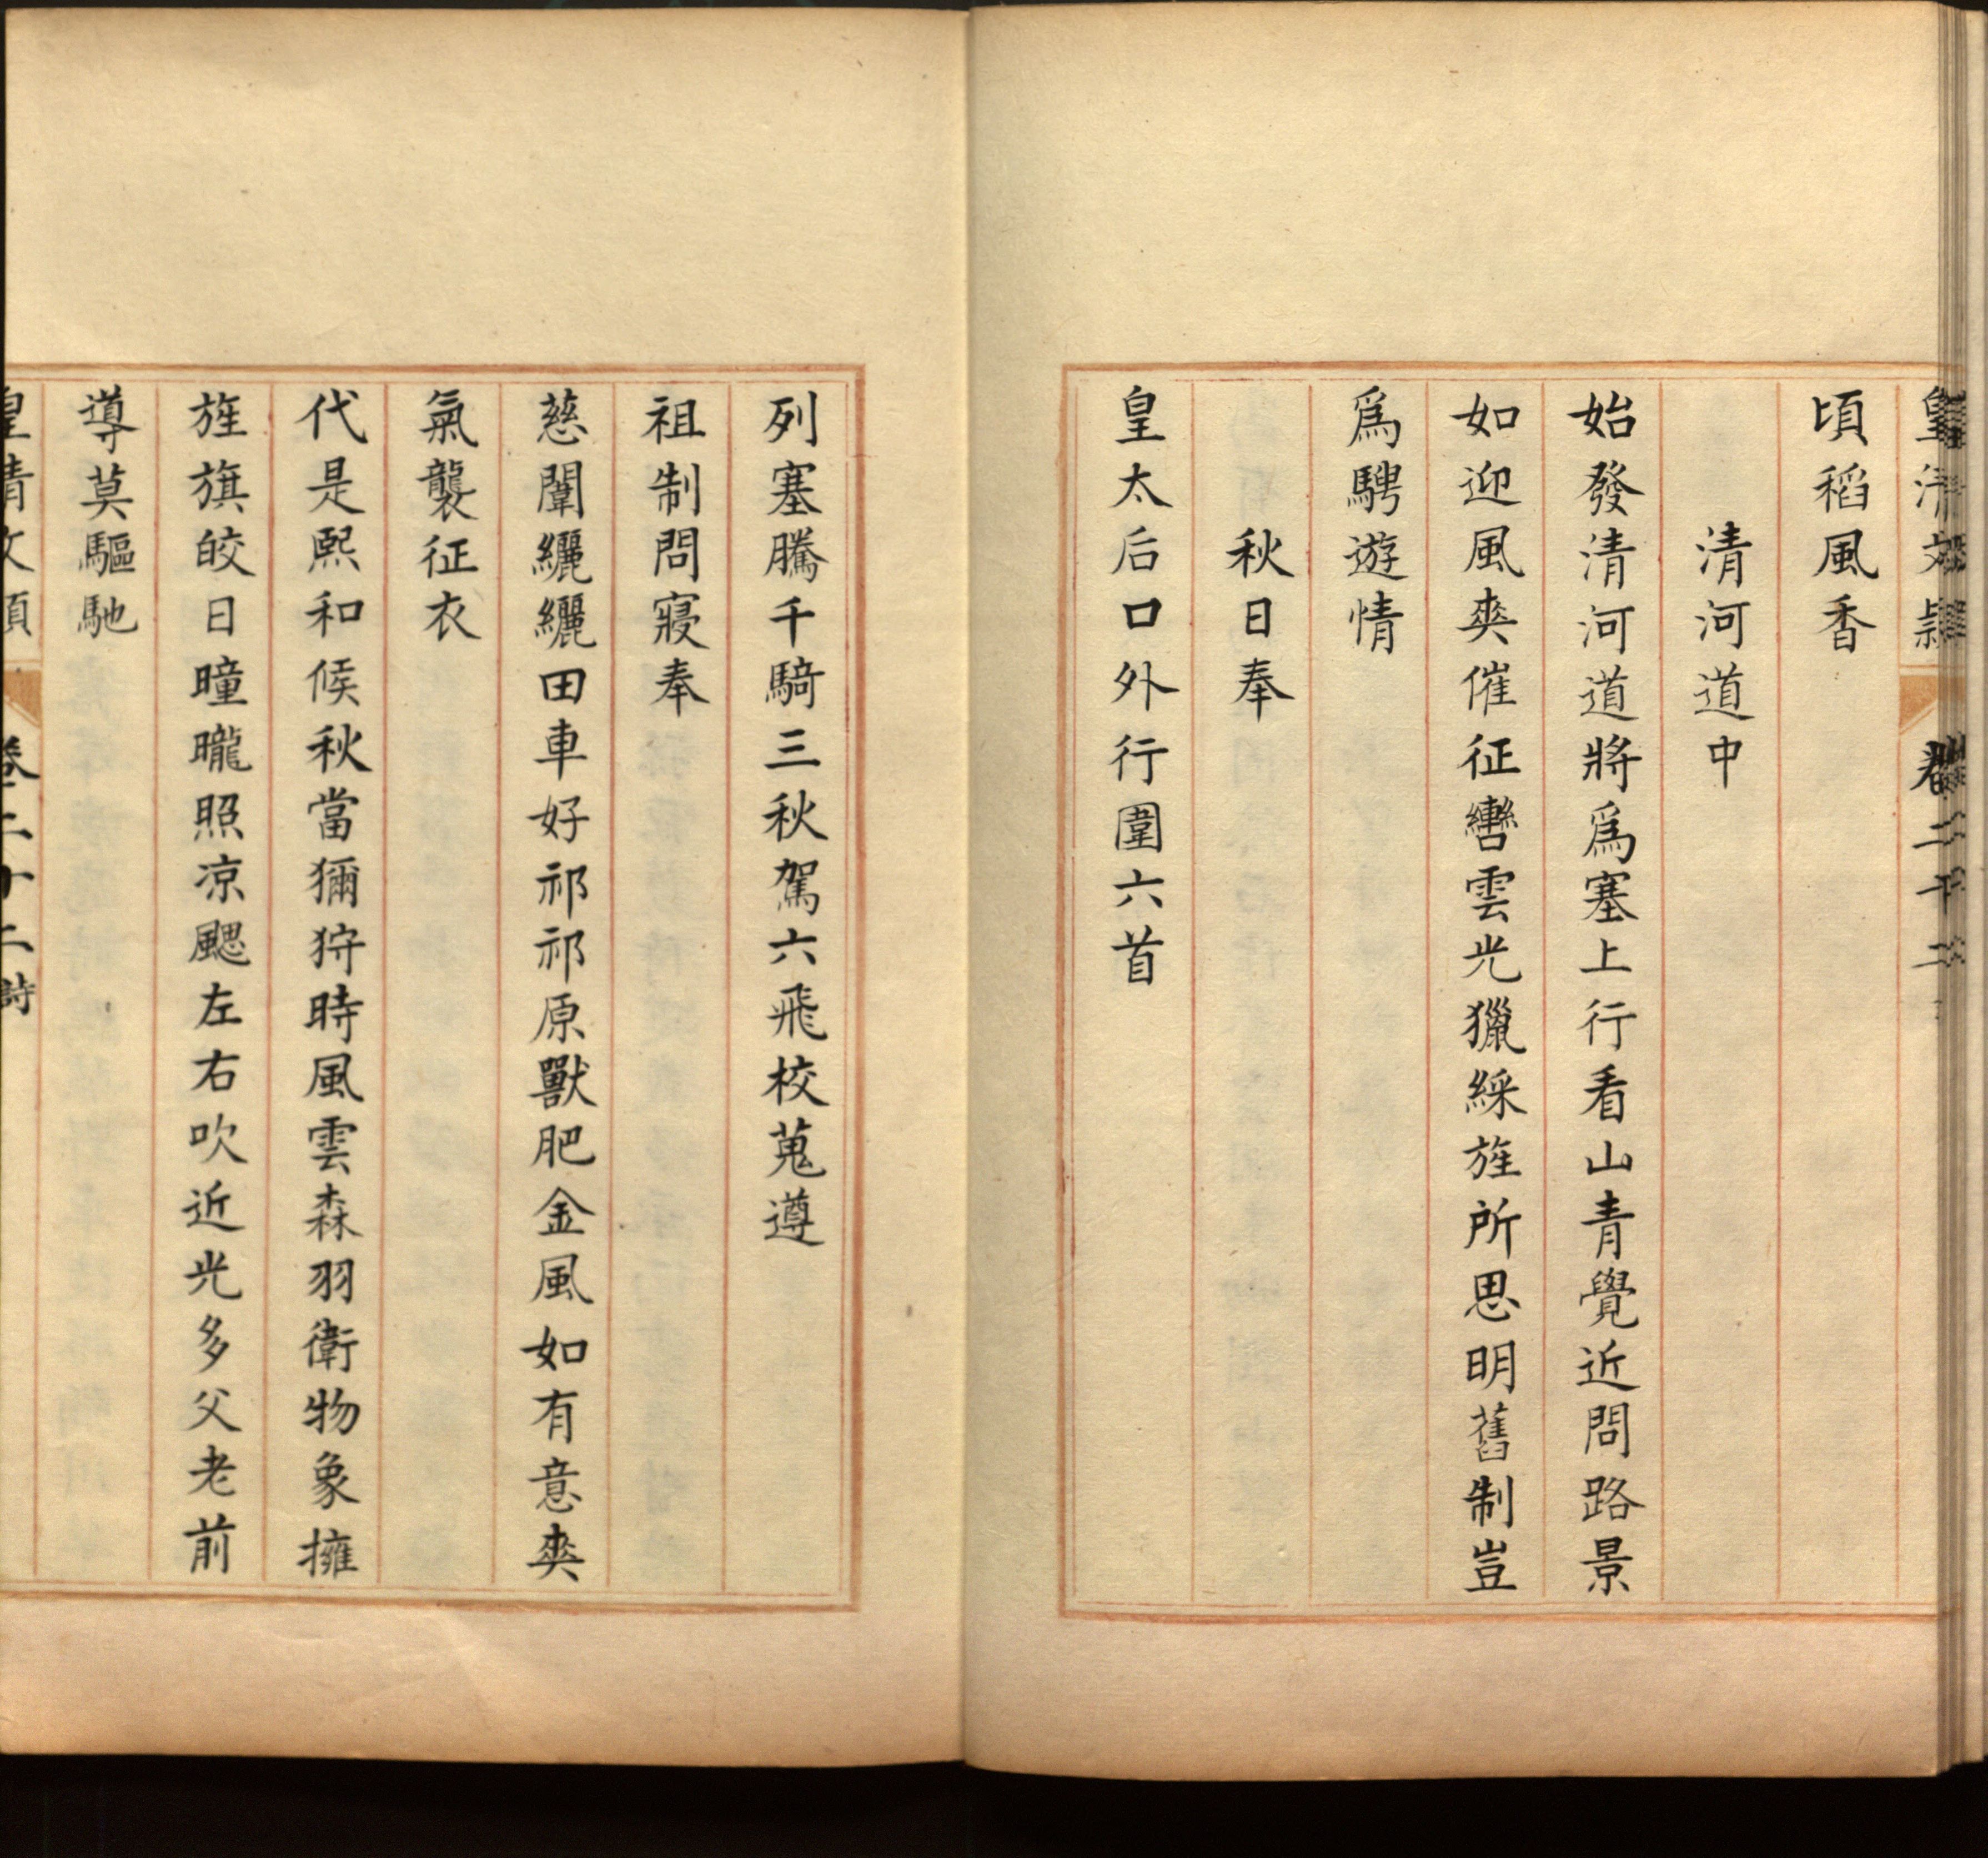 皇清文穎 卷二十二
頃稻風香
清河道中
始發清河道將爲塞上行看山青覺近問路景
如迎風爽催征轡雲光獵綵旌所思明舊制豈
爲騁遊情
秋日奉
皇太后口外行圍六首
列塞騰千騎三秋駕六飛校蒐遵
祖制問寢奉
慈闈纚纚田車好祁祁原獸肥金風如有意爽
氣襲征衣
代是熙和候秋當獮狩時風雲森羽衛物象擁
旌旗皎日曈曨照凉颸左右吹近光多父老前
導莫驅馳
皇清文穎 卷二十二 詩